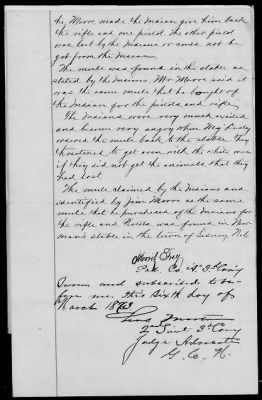 he Moore, made the Indian give him back
the rifle and one pistol. The other pistol
was lost by the Indians or could not be
got from the Indian.
The mule was found in the stable as
stated by the Indians. Mr Moore said it
was the same mule that he bought of
the Indian for the pistols and rifle.
The Indians were very much excited
and became very angry when
moved the mule back to the stable. They
threatened to get even with the white men
if they did not get the animals that they
had lost.
The mule claimed by the Indians and
identified by Jim Moore as the same
mule that he purchased of the Indians for
the rifle and Pistols was found in New
man's stable in the town of Sidney Neb
Frey
Co. 3d Cavy
Sworn and subscribed to be-
fore me, this Sixth day of
March 18
2nd Lieut 3d Cavy
Judge Advocate
G. C. M.